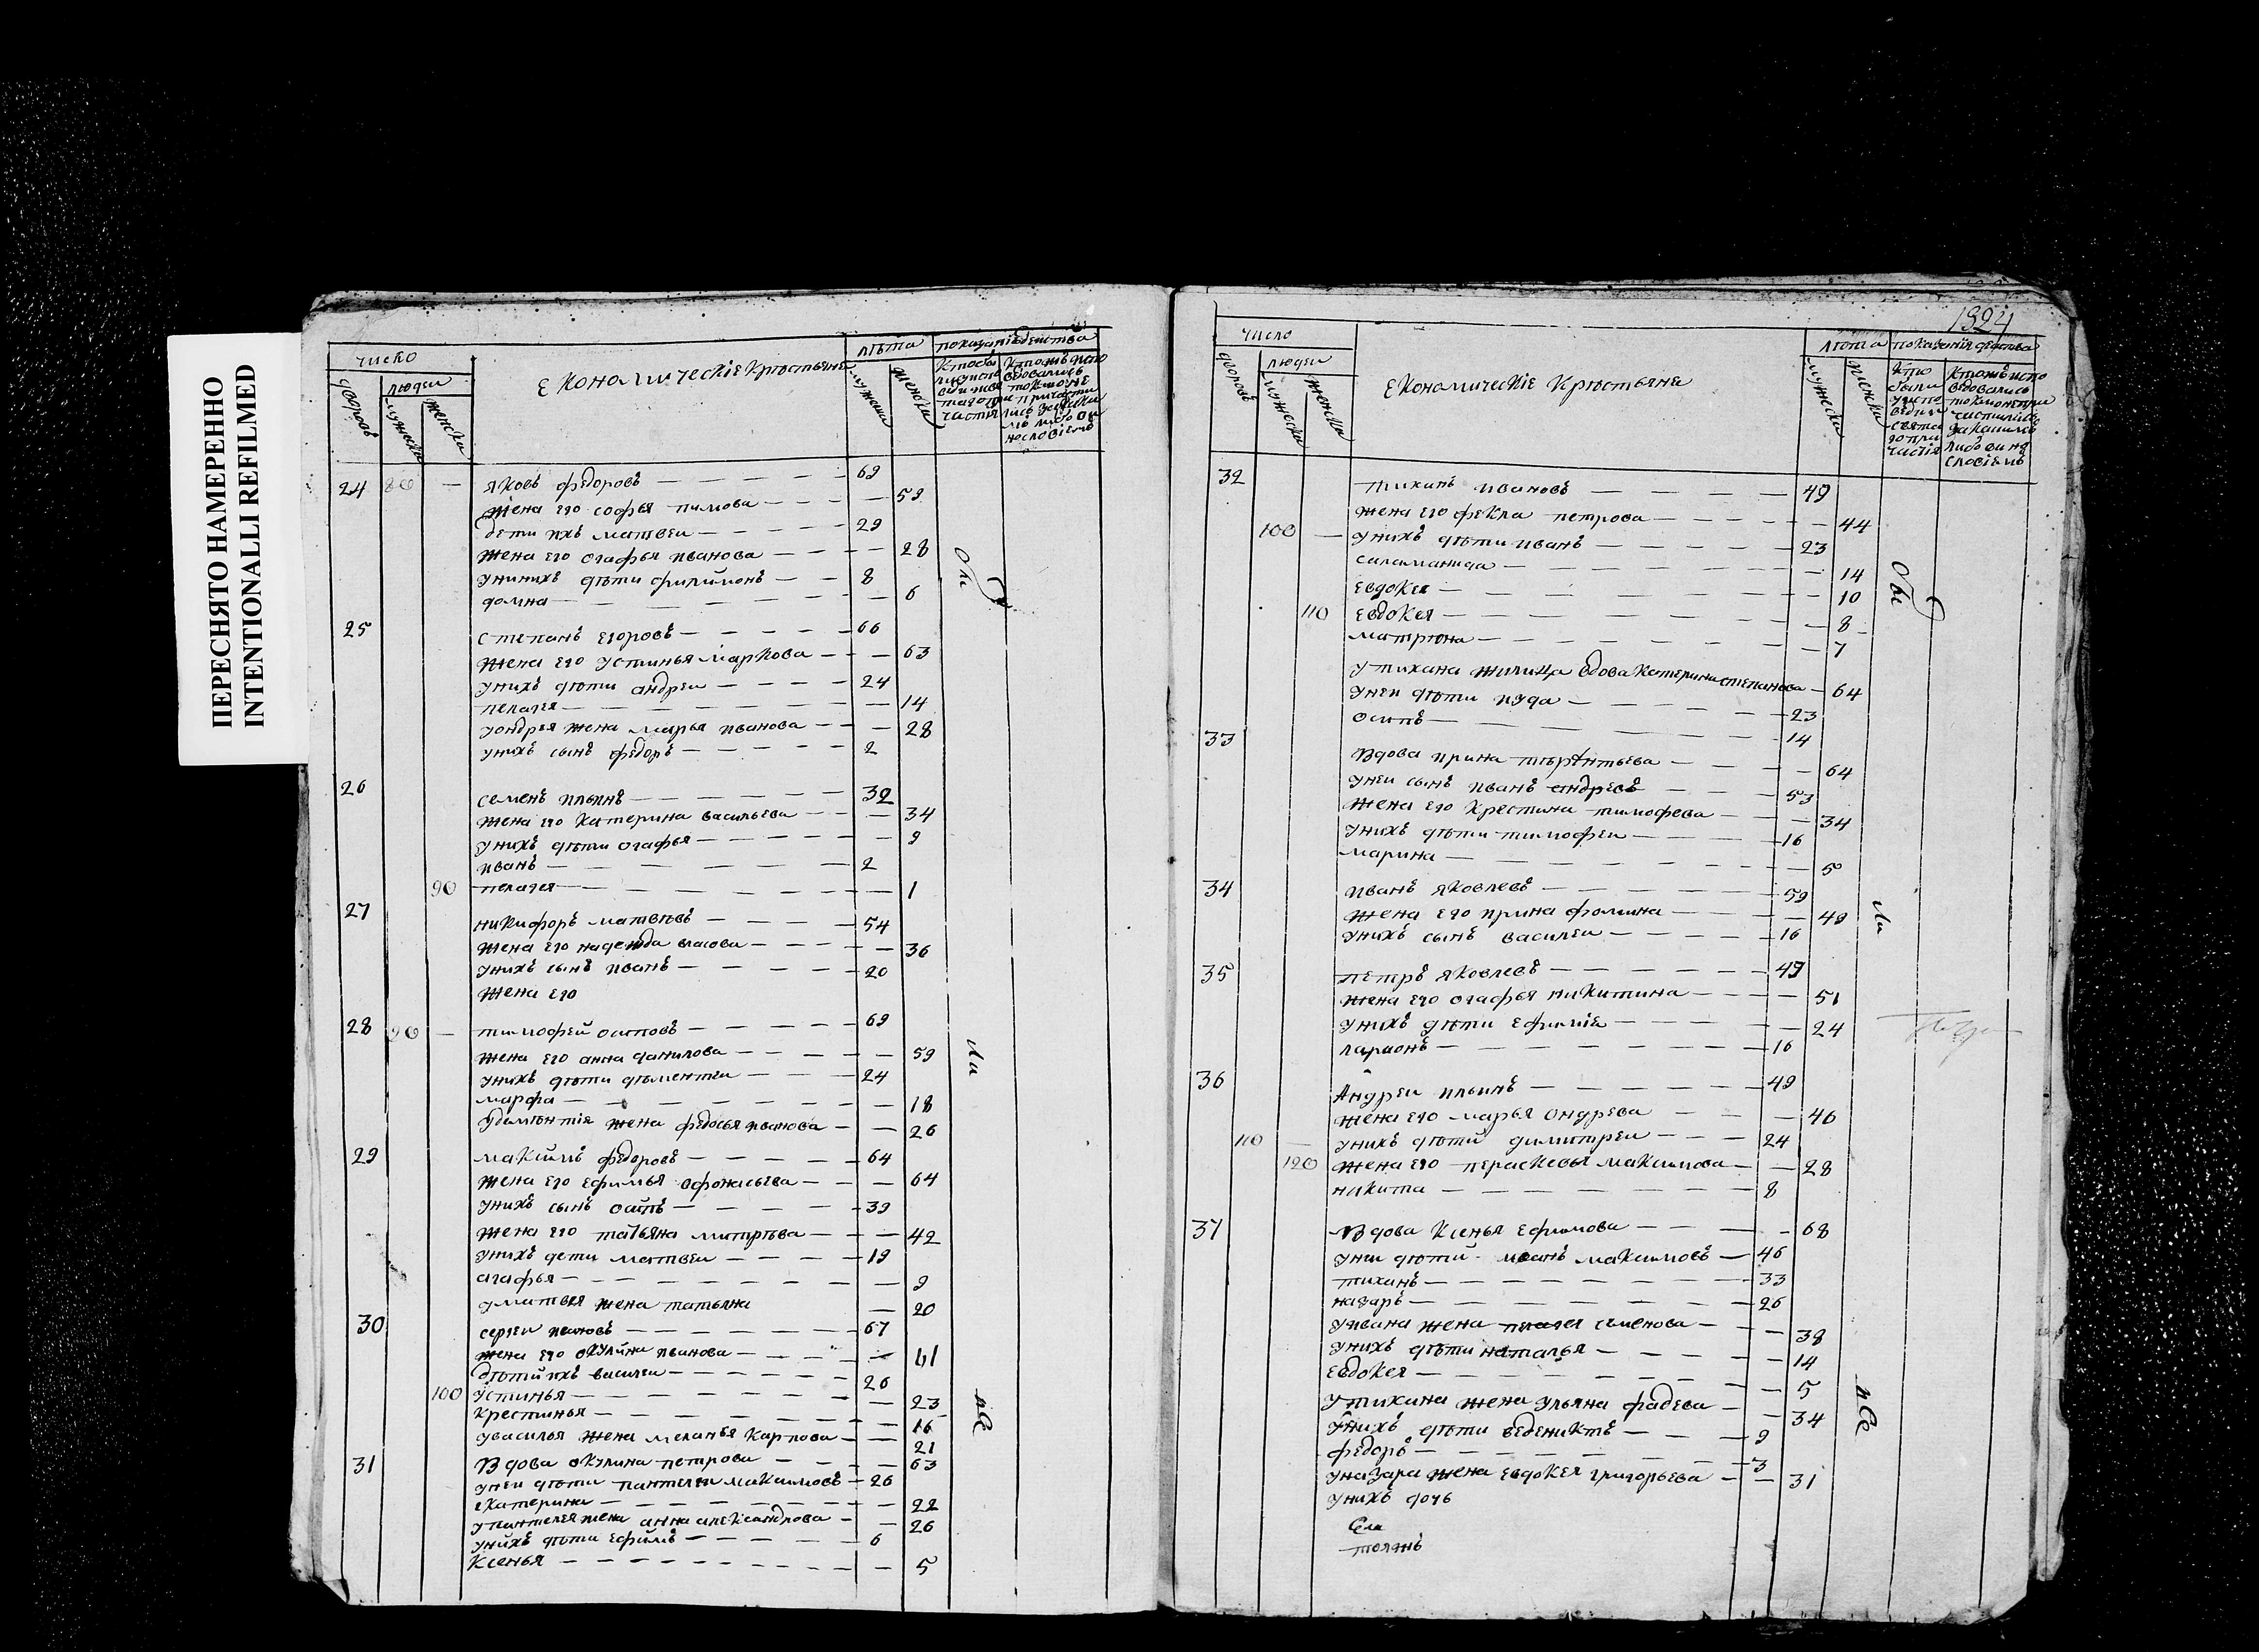 ПЕРЕСНЯТО НАМЕРЕННО
INTENTIONALLI REFILMED
число
людеи
дворовъ
мужеска
женска
Економическіе крѣстьяне
лѣта
мужеска
женска
показаніе деиства
24 80 — яковъ федоровъ — 69
жена его софья пимова — 59
дети ихъ матвеи — 29
жена его огафья иванова — 28
унинихъ дѣти филимонъ — 8
домна — 6
25 степанъ егоровъ — 66
жена его устинья маркова — 63
унихъ дѣти андреи — 24
пелагея — 14
уондрея жена марья иванова — 28
унихъ сынъ федоръ — 2
26 семенъ ильинъ — 32
жена его катерина васильева — 34
унихъ дѣти огафья — 9
иванъ — 2
90 пелагея — 1
27 никифоръ матвѣвъ — 54
жена его надежда власова — 36
унихъ сынъ иванъ — 20
жена его
28 90 — тимофей осиповъ — 69
жена его анна данилова — 59
унихъ дѣти дѣментеи — 24
марфа — 18
удемѣнтия жена федосья иванова — 26
29 максимъ федоровъ — 64
жена его ефимья офонасьева — 64
унихъ сынъ осипъ — 39
жена его татьяна митрѣва — 42
унихъ дети матвеи — 19
агафья — 9
уматвея жена татьяна — 20
30 сергеи ивановъ — 67
жена его окулина иванова — 61
дѣтийихъ василеи — 26
100 устинья — 23
крестинья — 16
увасилья жена меланья карпова — 21
31 Вдова окулина петрова — 63
унеи дѣти пантелеи максимовъ — 26
екатерина — 22
упантелея жена анна александрова — 26
унихъ дѣти ефимъ — 6
ксенья — 5
Обы
ли
пве
1824
число
людеи
дворовъ
мужеска
женска
Економическіе крѣстьяне
лѣта
мужеска
женска
показанія деиства
32 тиханъ ивановъ — 49
жена его фекла петрова — 44
100 — унихъ дѣти иванъ — 23
саламанида — 14
евдокея — 10
110 евдокея — 8
матрюна — 7
утихана жилица вдова катерина степанова — 64
унеи дѣти иуда — 23
осипъ — 14
33 Вдова ирина тѣрентьева — 64
унеи сынъ иванъ ондревъ — 53
жена его крестина тимофева — 34
унихъ дѣти тимофеи — 16
марина — 5
34 иванъ яковлевъ — 59
жена его ирина фомина — 49
унихъ сынъ василеи — 16
35 петръ яковлевъ — 49
жена его огафья никитина — 51
унихъ дѣти ефимія — 24
ларионъ — 16
36 Андреи ильинъ — 49
жена его марья ондрева — 46
110 — унихъ дѣтй димитреи — 24
120 жена его перасковья максимова — 28
никита — 8
37 Вдова ксенья ефимова — 68
унеи дѣтй иванъ максимовъ — 46
тиханъ — 33
назаръ — 26
уивана жена пелагея семенова — 38
унихъ дѣти наталья — 14
евдокея — 5
утихина жена ульяна фадева — 34
унихъ дѣти веденикть — 9
федоръ — 3
уназара жена евдокея григорьева — 31
унихъ дочь
Обы
ли
пве